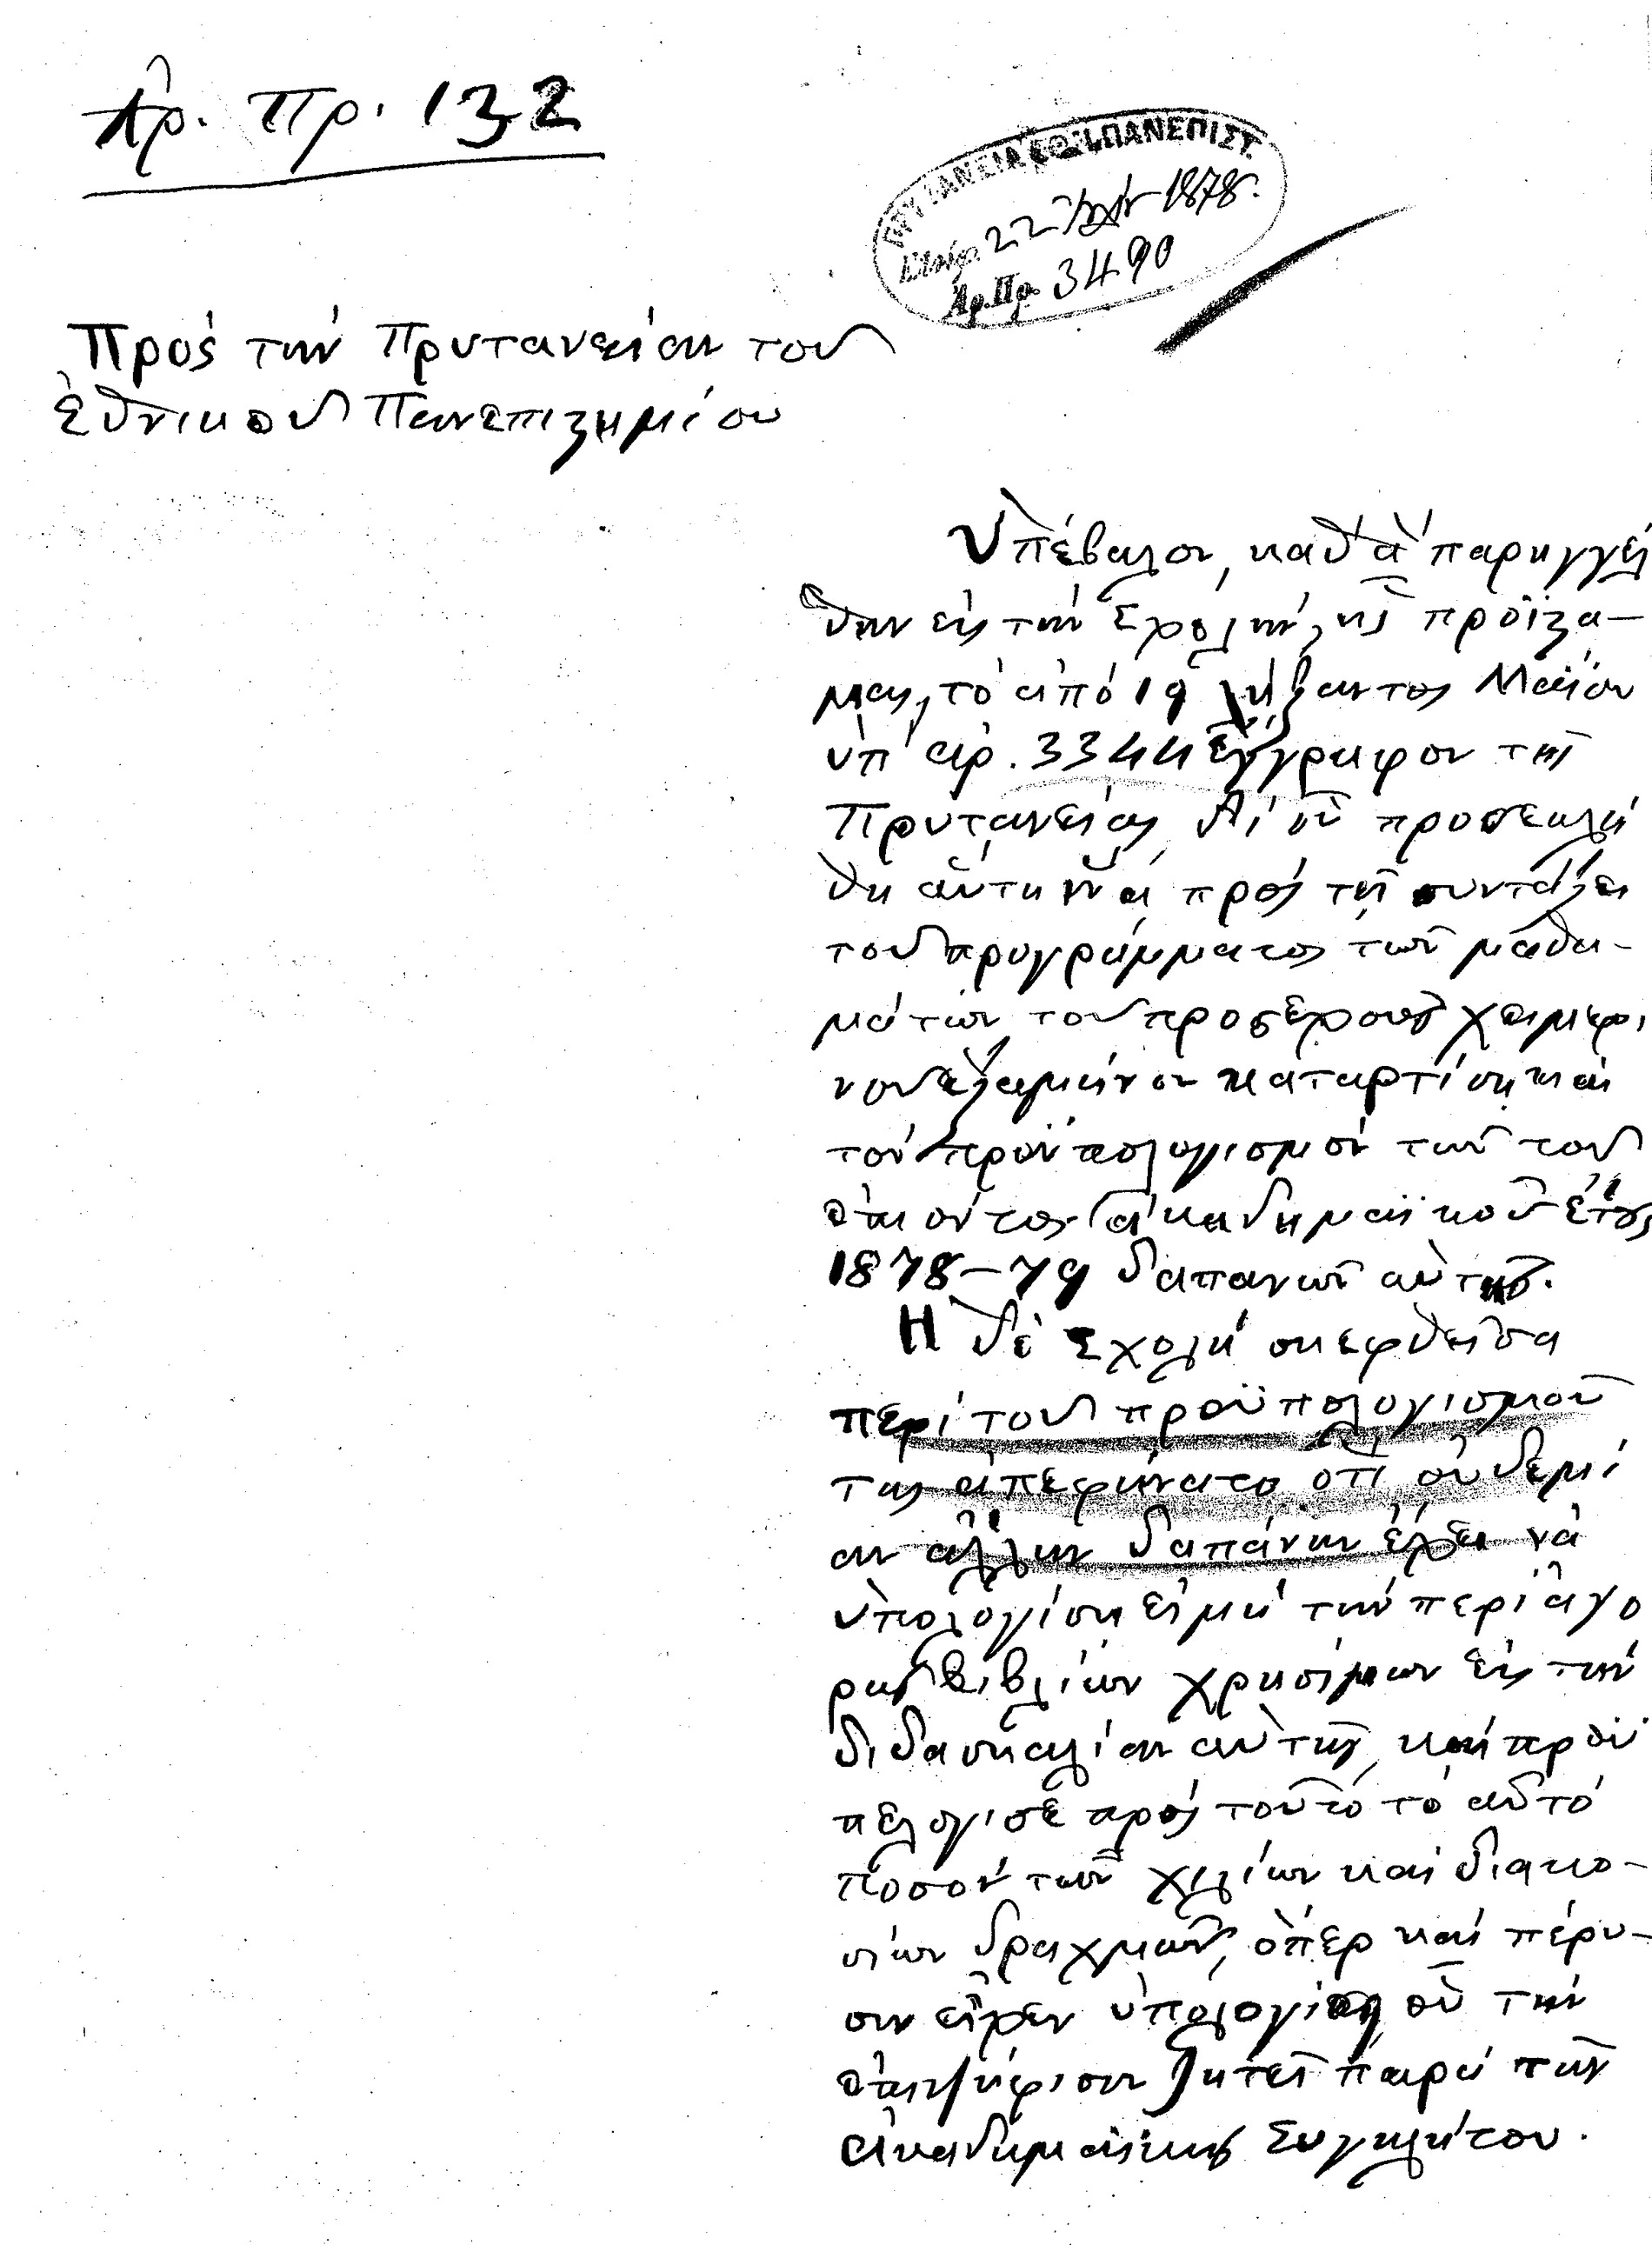 Ἀρ. Πρ. 132
ΠΡΥΤΑΝΕΙΑ ΕΘΝ. ΠΑΝΕΠΙΣΤ.
22 1878.
Ἀρ. Πρ. 3490
Πρὸς τὴν Πρυτανείαν τοῦ
Ἐθνικοῦ Πανεπιστημίου
Ὑπέβαλον, καθ' ἃ παρηγγέλ
θην εἰς τὴν Σχολήν, ἧς προΐστα-
μαι, τὸ ἀπὸ 19 λήξαντος Μαΐου
ὑπ' ἀρ. 3344 ἔγγραφον τῆς
Πρυτανείας δι' οὗ προσεκλή
θη αὕτη ἵνα πρὸς τῇ συντάξει
τοῦ προγράμματος τῶν μαθη-
μάτων τοῦ προσεχοῦς χειμερι
νοῦ ἑξαμήνου καταρτίσῃ καὶ
τὸν προϋπολογισμὸν τῶν τοῦ
ἐπιόντος ἀκαδημαϊκοῦ ἔτους
1878-79 δαπανῶν αὐτῆς.
Ἡ δὲ Σχολὴ σκεφθεῖσα
περὶ τοῦ προϋπολογισμοῦ
τῆς ἀπεφήνατο ὅτι οὐδεμί
αν ἄλλην δαπάνην ἔχει νὰ
ὑπολογίσῃ εἰμὴ τὴν περὶ ἀγο
ρᾶς βιβλίων χρησίμων εἰς τὴν
διδασκαλίαν αὐτῆς, καὶ προϋ
πελόγισε πρὸς τοῦτο τὸ αὐτὸ
ποσὸν τῶν χιλίων καὶ διακο-
σίων δραχμῶν, ὅπερ καὶ πέρυ-
σιν εἶχεν ὑπολογίσῃ, οὗ τὴν
ἐπιψήφισιν ζητεῖ παρὰ τῆς
Ἀκαδημαϊκῆς Συγκλήτου.